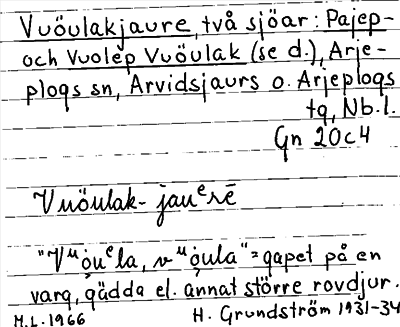 Vuöulakjaure, två sjöar: Pajep-
och Vuolep Vuöulak (se d.), Arje-
plogs sn, Arvidsjaurs o. Arjeplogs
tg, Nb.l.
Gn 20c4
Vuöulak-jauᵉrē
"Vᵘo̯uᵉla, vᵘo̯ula" = gapet på en
varg, gädda el. annat större rovdjur.
M.L. 1966 H. Grundström 1931-34